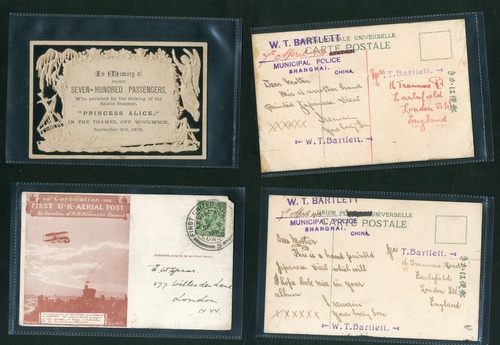 In Memory of
NEARLY
SEVEN HUNDRED PASSENGERS,
Who perished by the sinking of the
Saloon Steamer,
"PRINCESS ALICE,"
IN THE THAMES, OFF WOOLWICH,
September 3rd, 1878.
W. T. BARTLETT
POSTALE UNIVERSELLE
CARTE POSTALE
MUNICIPAL POLICE
SHANGHAI. CHINA.
Dear Mother
This is another hand
painted Japanese View
I remain
XXXXXX
W. T. Bartlett.
T. Bartlett.
16 Tranmere Rd
Earlsfield
London S.W.
England
きかは便郵
Coronation
FIRST U·K·AERIAL POST
By Sanction of H.M. Postmaster General
FIRST UNITED
E W
277 Willesden Lane
London
N W
W. T. BARTLETT
UNION POSTALE UNIVERSELLE
MUNICIPAL POLICE
CARTE POSTALE
SHANGHAI. CHINA.
Dear Mother
This is a hand painted
Japanese View which will
I hope look nice in your
album
I remain
Your loving Son
XXXXX
W. T. Bartlett.
T. Bartlett.
16 Tranmere Road
Earlsfield
London S.W.
England
きかは便郵